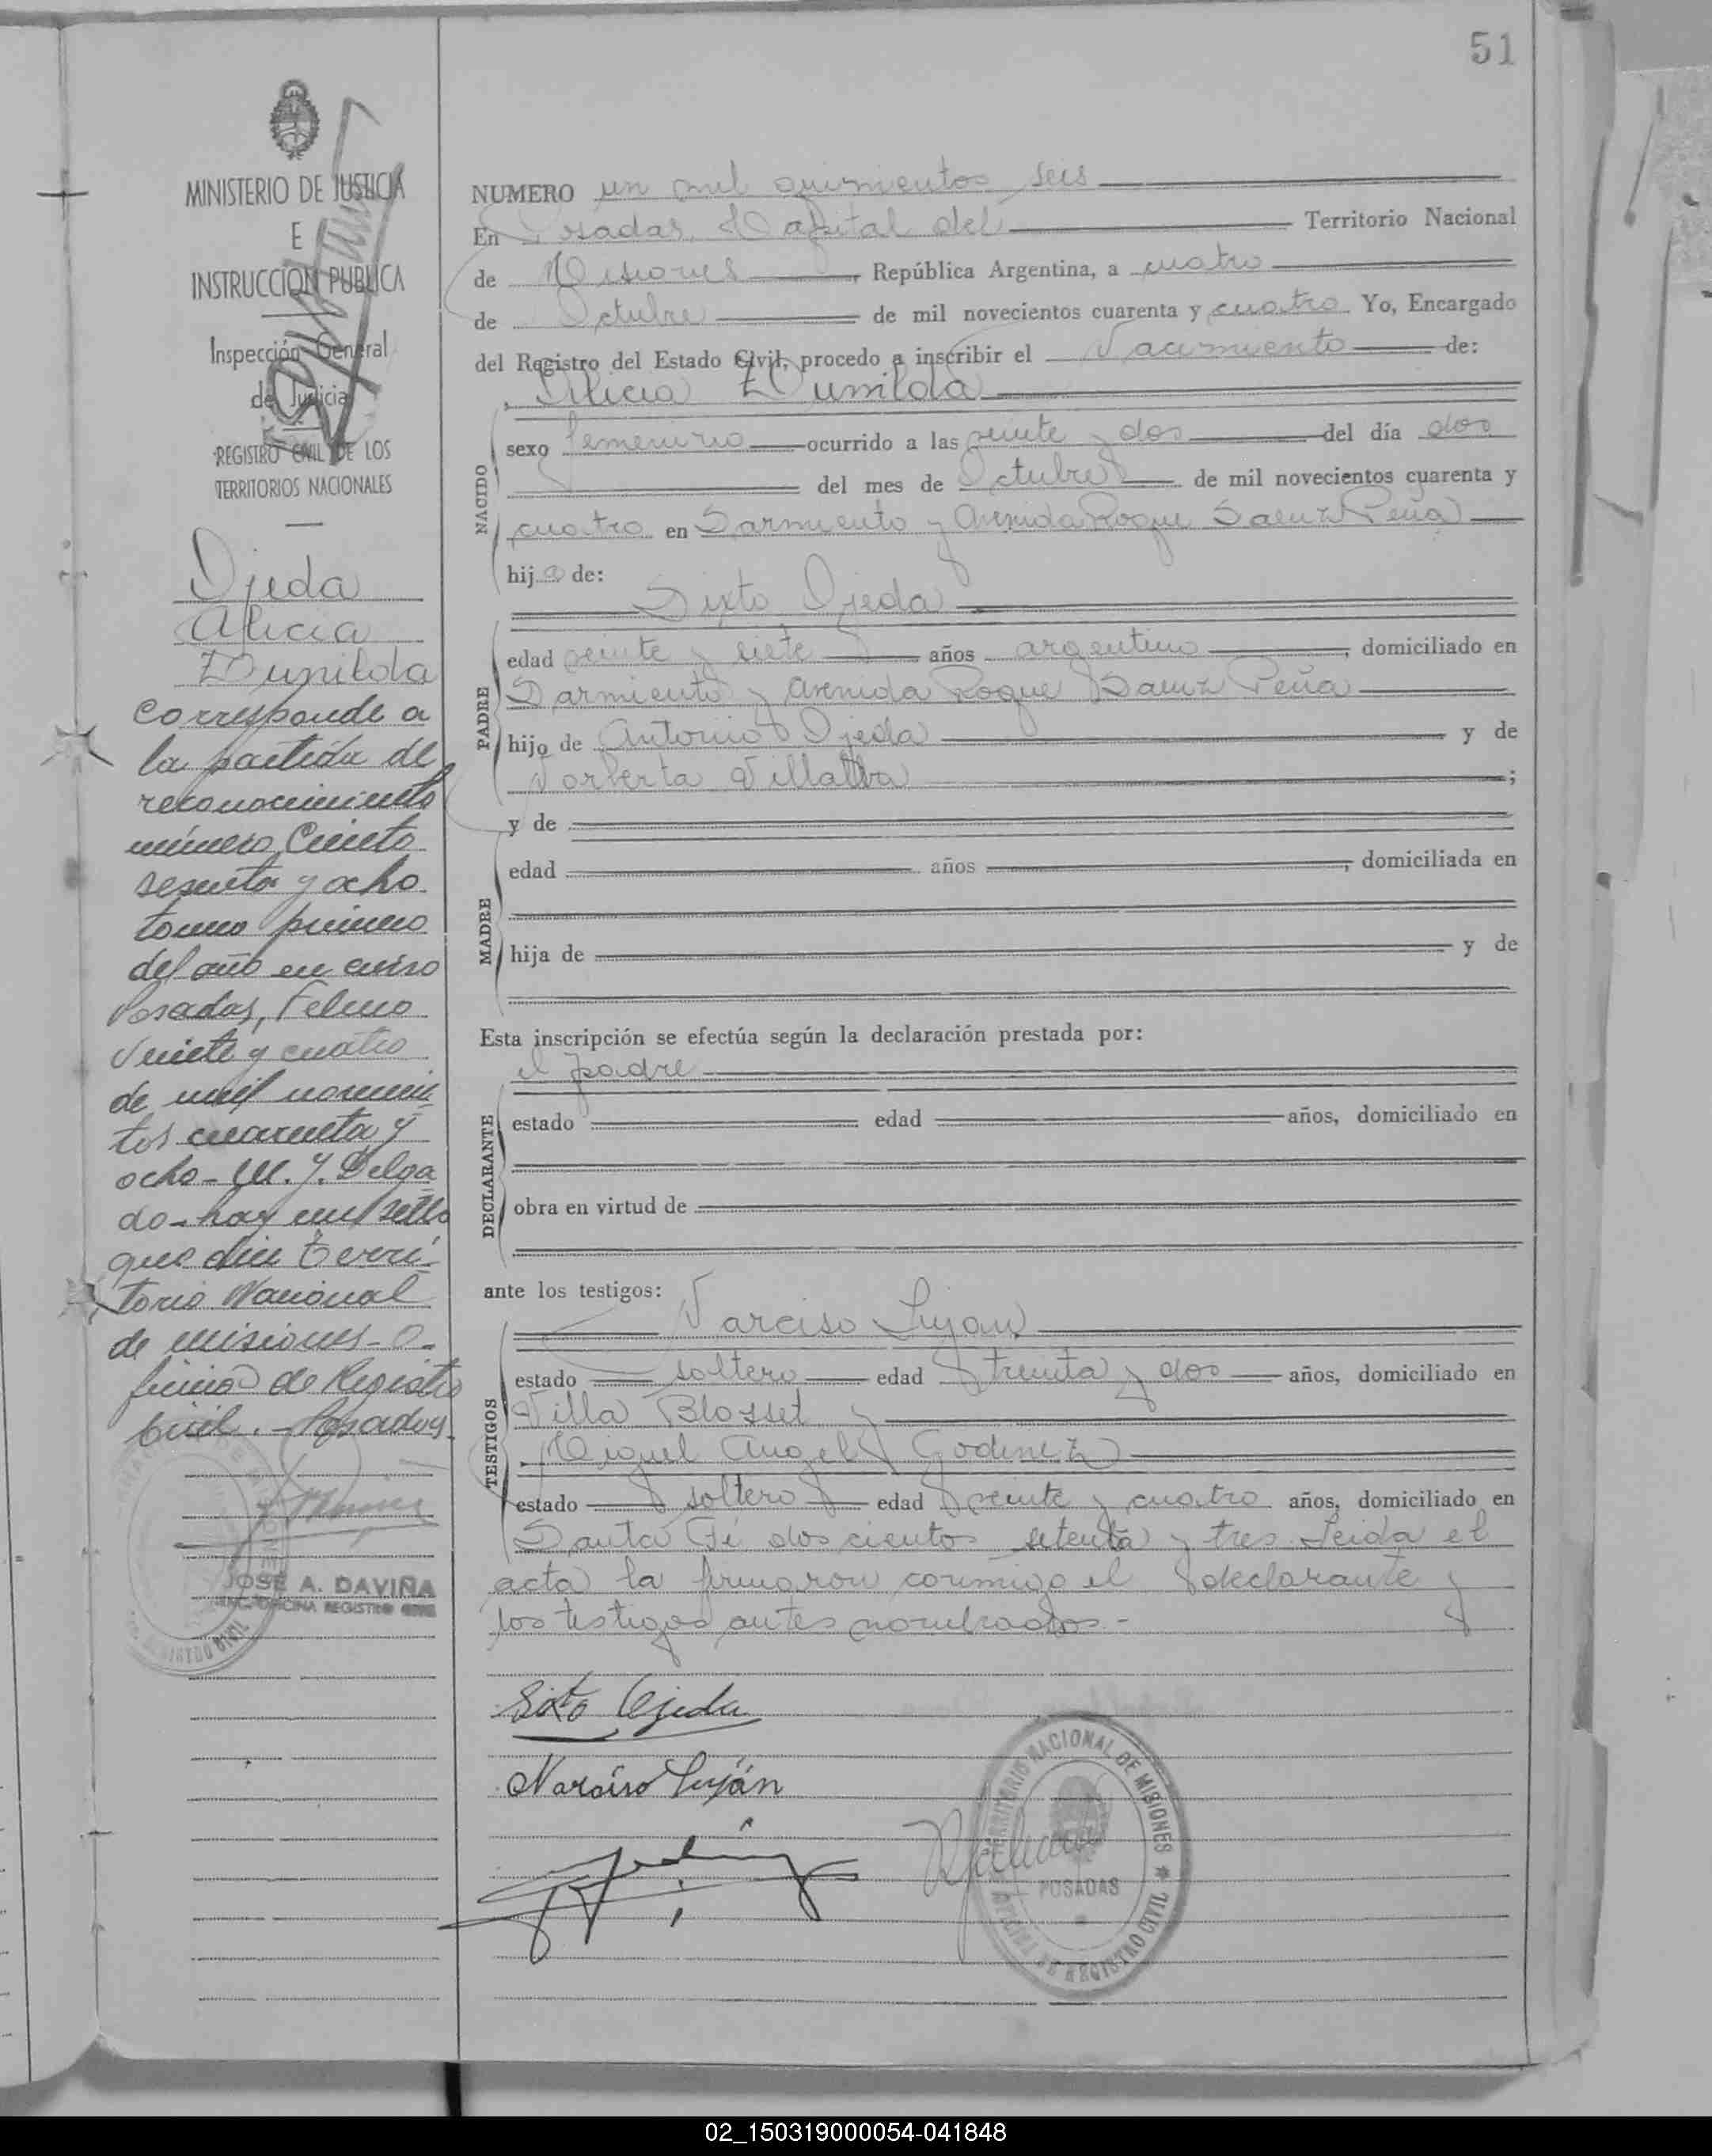 51
MINISTERIO DE JUSTICIA
E
INSTRUCCION PUBLICA
Inspección General
de Justicia
REGISTRO CIVIL DE LOS
TERRITORIOS NACIONALES
Ojeda
Alicia
Dunilda
Corresponde a
la partida de
reconocimiento
número Ciento
sesenta y ocho
tomo primero
del año en curso
Posadas, Febrero
Veinte y cuatro
de mil novecien
tos cuarenta y
ocho - M. J. Delga
do - hay un sello
que dice Terri-
torio Nacional
de Misiones - O-
ficina de Registro
Civil. - Posadas.
JOSÉ A. DAVIÑA
OFICINA REGISTRO CIVIL
NUMERO un mil quinientos seis
En Posadas, Capital del Territorio Nacional
de Misiones, República Argentina, a cuatro
de Octubre de mil novecientos cuarenta y cuatro Yo, Encargado
del Registro del Estado Civil, procedo a inscribir el Nacimiento de:
Alicia Dunilda
NACIDO
sexo femenino ocurrido a las veinte y dos del día dos
del mes de Octubre de mil novecientos cuarenta y
cuatro en Sarmiento y Avenida Roque Saenz Peña
hija de:
Sixto Ojeda
PADRE
edad veinte y siete años argentino, domiciliado en
Sarmiento y Avenida Roque Saenz Peña
hijo de Antonio Ojeda y de
Norberta Villalba;
y de
MADRE
edad años, domiciliada en
hija de y de
Esta inscripción se efectúa según la declaración prestada por:
el padre
DECLARANTE
estado edad años, domiciliado en
obra en virtud de
ante los testigos:
Narciso Lujan
TESTIGOS
estado soltero edad treinta y dos años, domiciliado en
Villa Blosset y
Miguel Angel Godinez
estado soltero edad veinte y cuatro años, domiciliado en
Santa Fé doscientos setenta y tres. Leida el
acta la firmaron conmigo el declarante y
los testigos antes nombrados.-
Sixto Ojeda
Narciso Luján
TERRITORIO NACIONAL DE MISIONES
POSADAS
OFICINA DE REGISTRO CIVIL
02_150319000054-041848